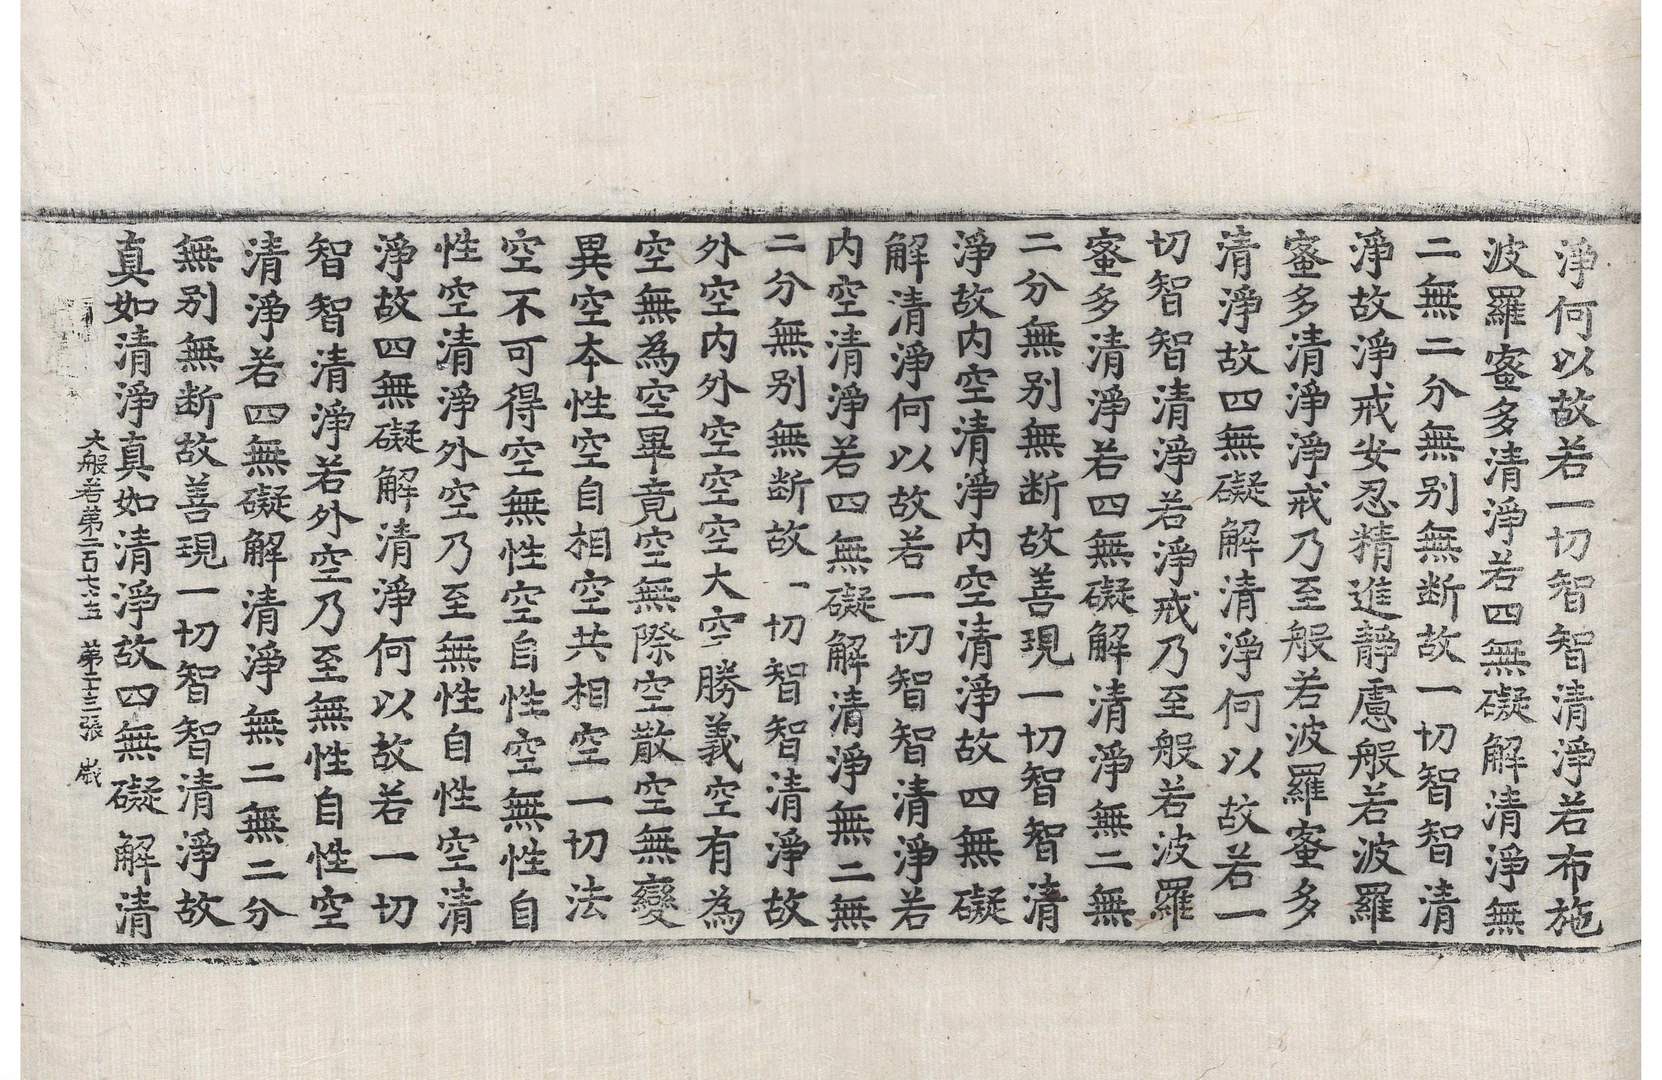 淨何以故若一切智智清淨若布施
波羅蜜多清淨若四無礙解清淨無
二無二分無別無断故一切智智清
淨故淨戒安忍精進靜慮般若波羅
蜜多清淨淨戒乃至般若波羅蜜多
清淨故四無礙解清淨何以故若一
切智智清淨若淨戒乃至般若波羅
蜜多清淨若四無礙解清淨無二無
二分無別無断故善現一切智智清
淨故内空清淨内空清淨故四無礙
解清淨何以故若一切智智清淨若
内空清淨若四無礙解清淨無二無
二分無別無断故一切智智清淨故
外空内外空空空大空勝義空有為
空無為空畢竟空無際空散空無變
異空本性空自相空共相空一切法
空不可得空無性空自性空無性自
性空清淨外空乃至無性自性空清
淨故四無礙解清淨何以故若一切
智智清淨若外空乃至無性自性空
清淨若四無礙解清淨無二無二分
無別無断故善現一切智智清淨故
真如清淨真如清淨故四無礙解清
大般若第二百七十五 第二十三張 嵗